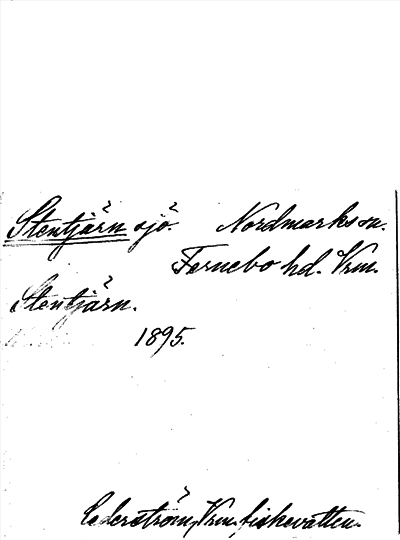 Stentjärn sjö. Nordmarks sn.
Fernebo hd. Vrm.
Stentjärn.
1895.
Cederström, Vrm. fiskevatten.